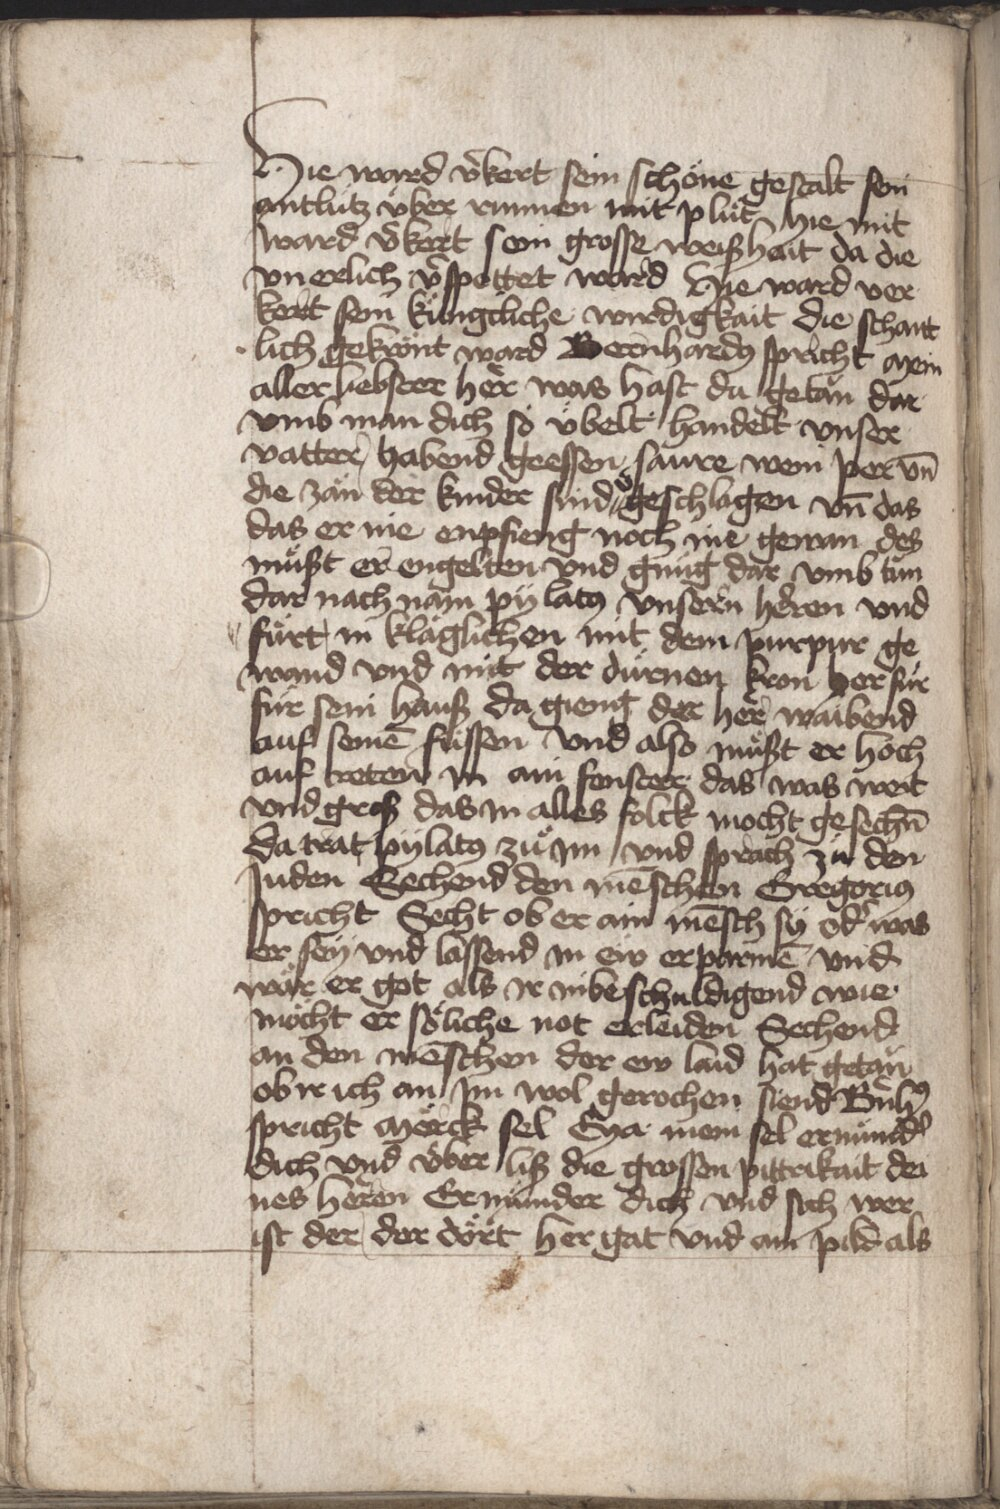 Hie ward v̄kert sein schöne gestalt sein
antlütz über runnen mit plůt hie mit
ward v̄kert sein grosse weißhait da die
vnerlich v̄spottet ward Hie ward ver
kert sein küngcliche wirdigkait die schant
lich gekrönt ward Bernhardꝰ spricht Mein
aller liebster her was hast du getan dar
vmb man dich so übelt handelt vnser
vatter habend geessen saure wein per vn̄
die zän der kinder sind geschlagen vn̄ das
das er nie enpfieng noch nie gewan des
můßt er engelten vnd gnůg dar vmb tůn
dar nach nam pylatꝰ vnsern heren vnd
fůrt in kläglichen mit dem purpur ge
wand vnd mit der dürnen kron her für
für sein hauß da gieng der her waibend
auf seinē füssen vnd also můßt er hoch
auf treten in ain fenster das was weit
vnd groß das in alles folck mocht gesechn̄
da trat pylatꝰ zů im vnd sprach zů den
Juden Sechend den mēschen Gregoriꝰ
spricht Secht ob er ain mēsch sy od' was
er sey vnd lassend in ew erparmē vnd
wär er got als ir in beschuldigend wie
möcht er söliche not erleiden Sechend
an den mēschen der ew laid hat getan
ob ir ich an im wol gerochen siend Bn̄hꝰ
spricht Merck sel Eya mein sel ermünd'
dich vnd über liß die grossen pittrikait dei
nes heren Ermünder dich vnd sich wer
ist der der dört her gat vnd ain pild als